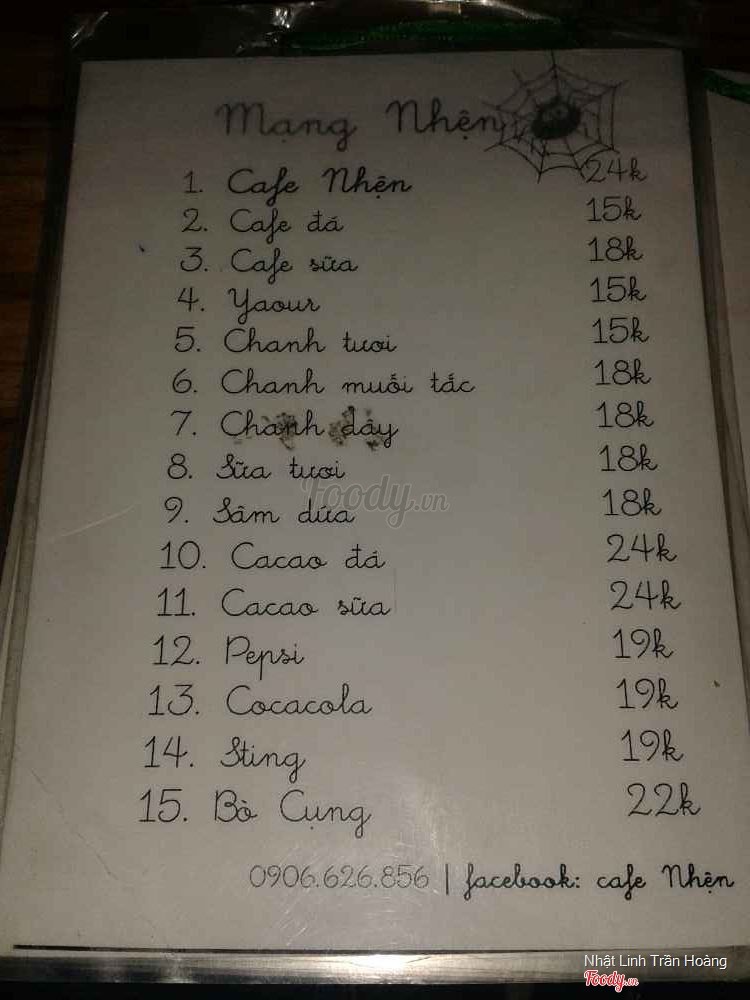 Mạng Nhện
1. Cafe Nhện 24k
2. Cafe đá 15k
3. Cafe sữa 18k
4. Yaour 15k
5. Chanh tươi 15k
6. Chanh muối tắc 18k
7. Chanh dây 18k
8. Sữa tươi 18k
9. Sâm dứa 18k
10. Cacao đá 24k
11. Cacao sữa 24k
12. Pepsi 19k
13. Cocacola 19k
14. Sting 19k
15. Bò Cụng 22k
0906.626.856 | facebook: cafe Nhện
Foody.vn
Nhật Linh Trần Hoàng
Foody.vn